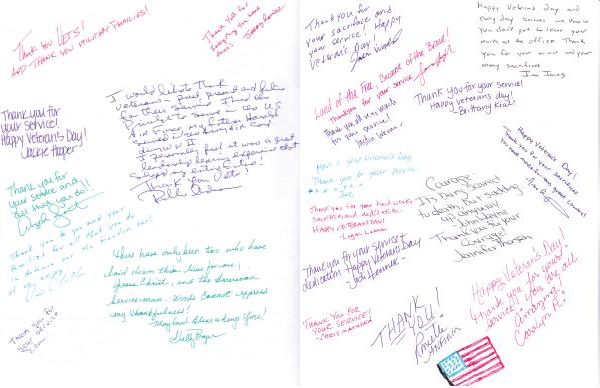 THANK YOU VETS!
AND THANK YOU MILITARY FAMILIES!
Thank you for
everything you have
done!
Thank you for
your service!
Happy Veteran's Day!
Jackie Hooper
I would like to Thank
veterans - past, present and future
for their service. I had the
privilege to serve in the US
Air Force. My father
served in the Army Air Corp
during WW II.
I personally feel it was a great
leadership learning experience that
shaped my entire life!
Thank You Vets!
Thank you for
your service and
all that you do!!
Thank you to you and your
families for all that you do
to defend our the freedom
we enjoy.
There have only been two who have
laid down their lives for me;
Jesus Christ, and the American
Service-man. Words cannot express
my thankfulness!
-May God Bless & keep You!
Kelly Boyer
Thank you for
your service.
Thank you for
your sacrifice and
your service! Happy
Veteran's Day!
Land of the Free, Because of the Brave!
Thank you for your service
Thank you all very much
for your service!
Have a great Veterans Day
Thank you for your service.
Thank you for your hard work,
sacrifice, and dedication.
HAPPY VETERANS DAY!
-Logan
Thank you for your service +
dedication. Happy Veterans Day
-Jodi
THANK YOU FOR
YOUR SERVICE!
-CHRIS
THANK
YOU!
Happy Veterans day and
every day because we know
you don't get to leave your
work at the office. Thank
you for your service and your
many sacrifices
Jim
Thank you for your service!
Happy Veterans day!
-Brittany
Happy Veterans Day!
Thank you for your sacrifices
You have made for our great country!
Courage
is being scared
to death, but saddling
up anyway
-John Wayne
Thank you for your
Courage!
Jannista Thorson
Happy Veteran's Day!
Thank you for your
service! You are all
amazing.
Carolyn